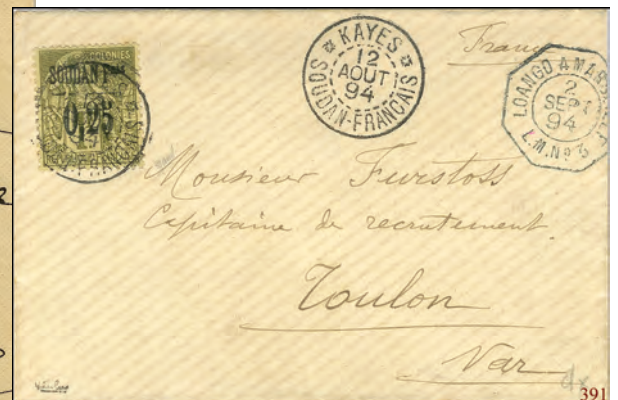 COLONIES
SOUDAN Fais
0,25
SOUDAN-FRANCAIS
KAYES
12
AOUT
94
SOUDAN-FRANCAIS
France
LOANGO A MARSEILLE
2
SEPT
94
L.M. Nº 3
Monsieur Furstoss
Capitaine de recrutement
Toulon
Var
391